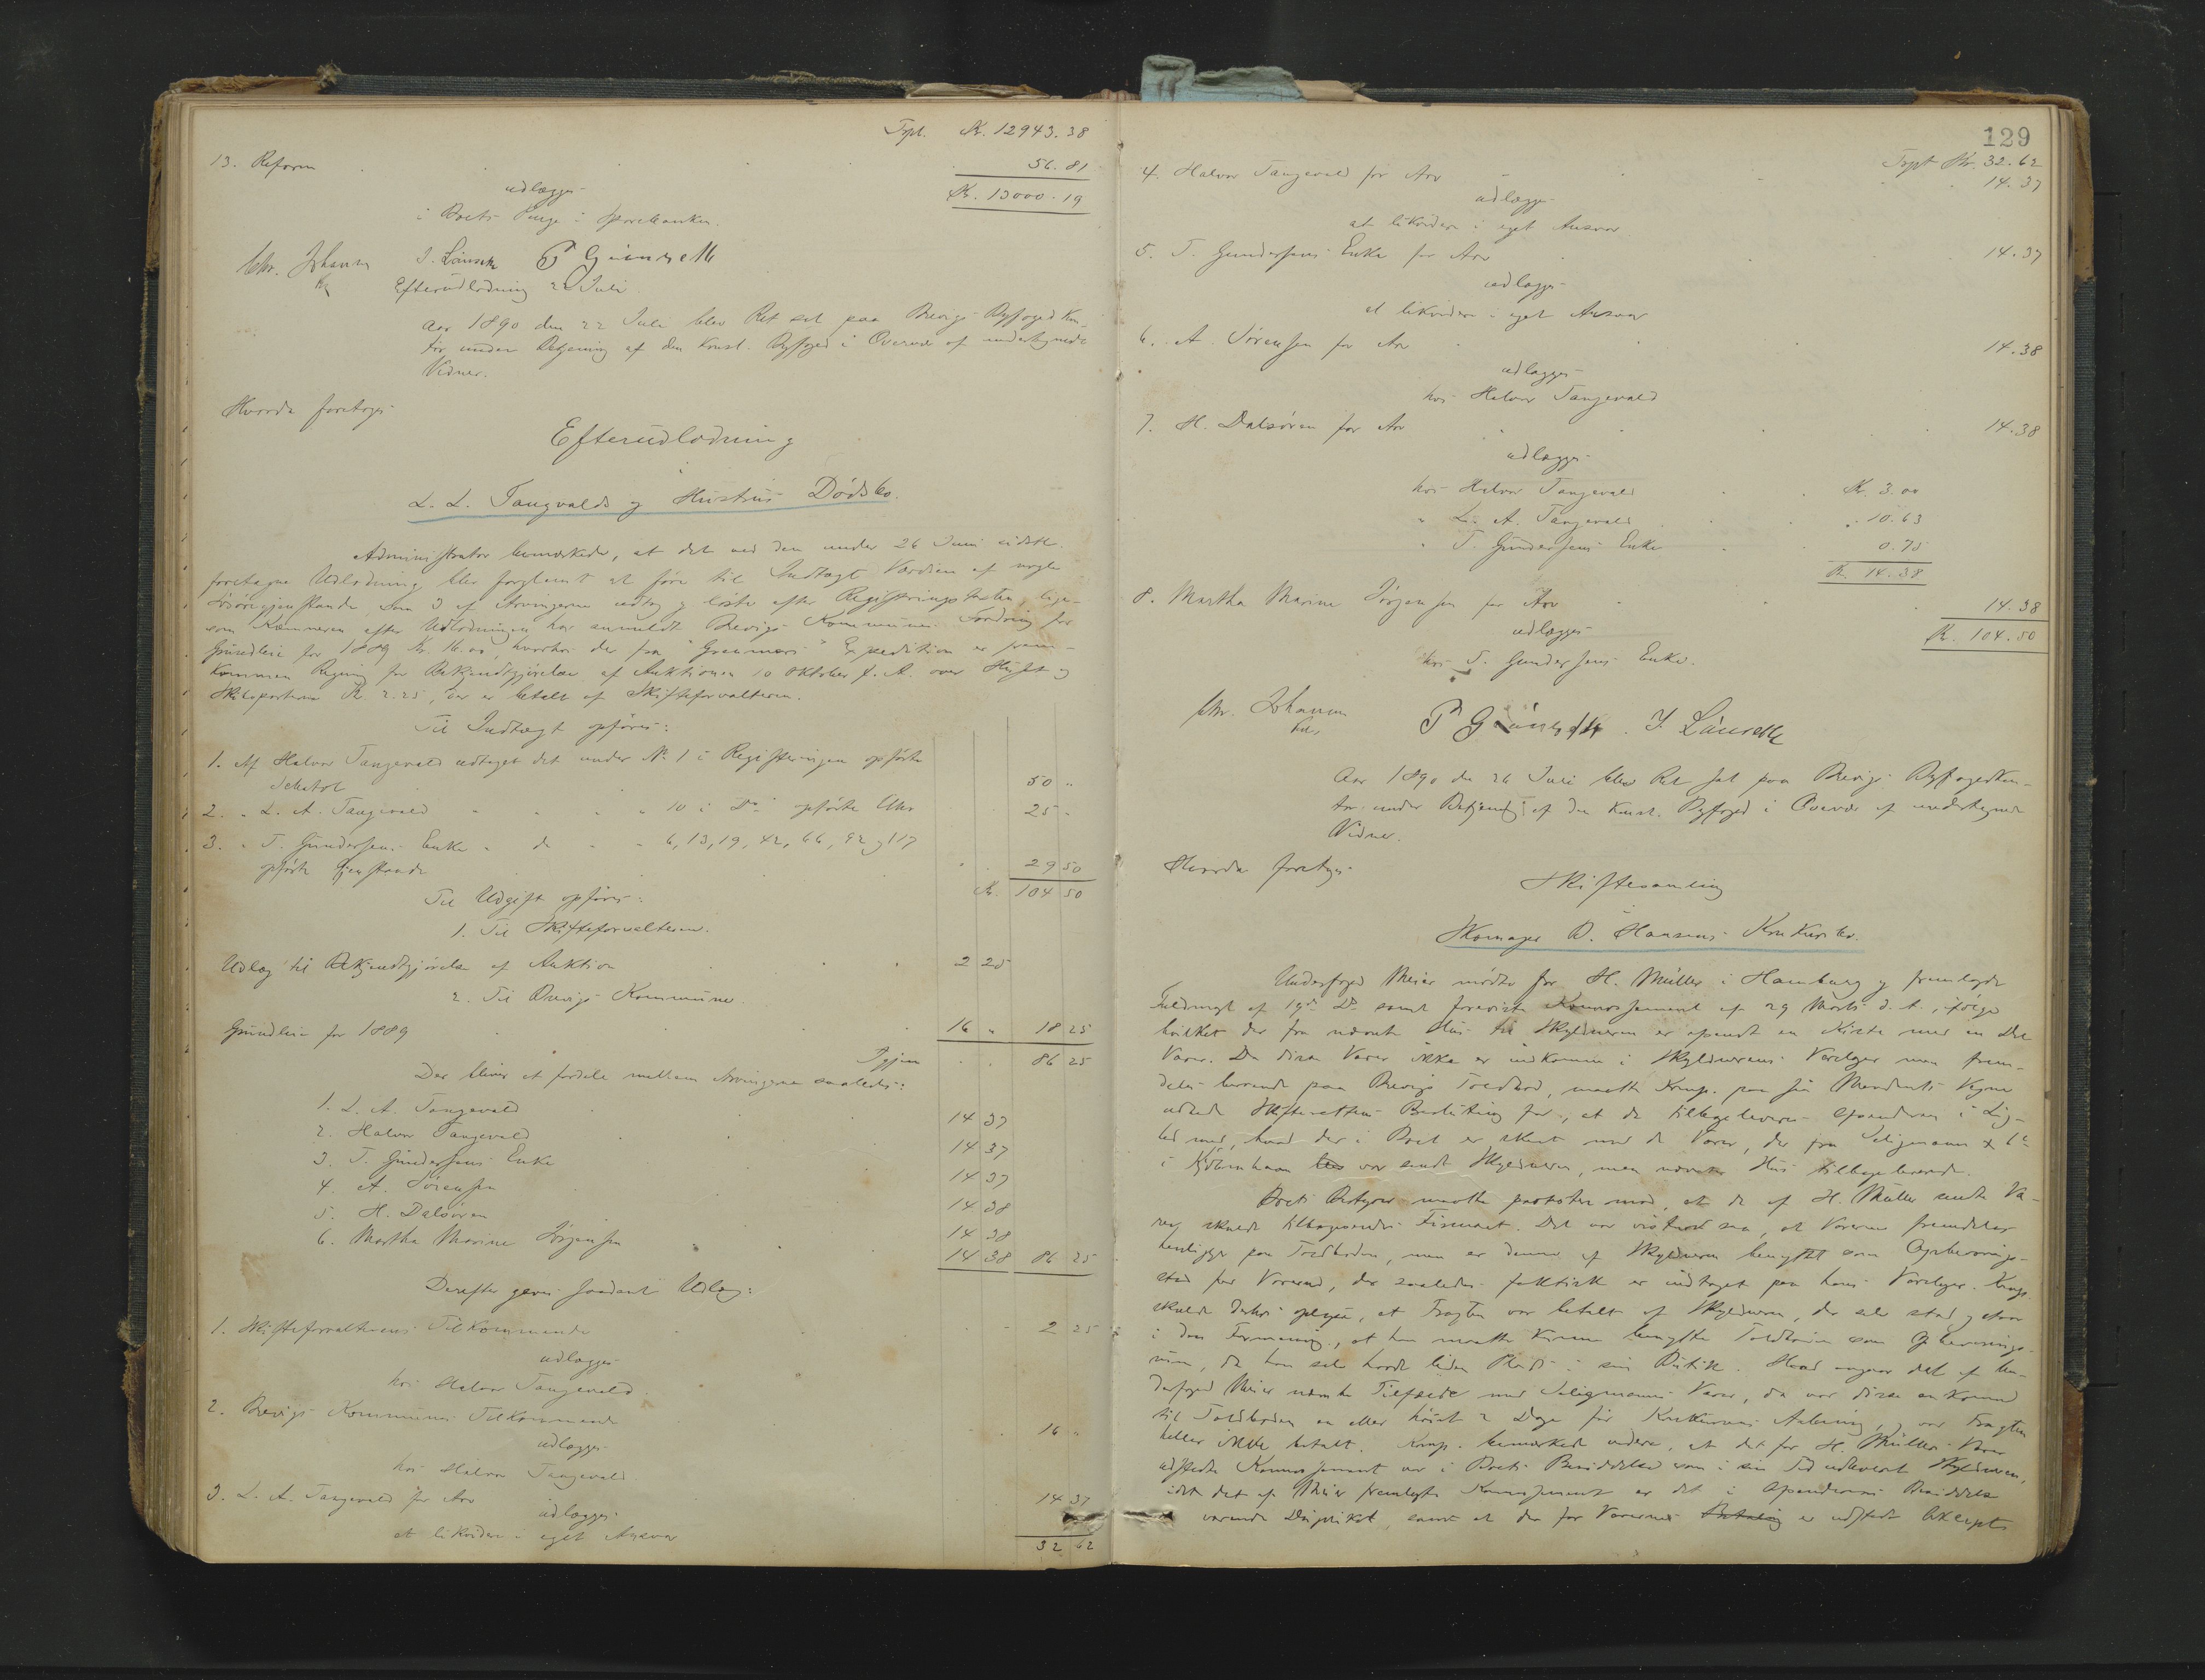 Trpt. Kr. 12943.38
13. Reform 56.81
udlægges Kr. 13000.19
i Boets Penge i Sparebanken.
Chr. Johannsen J. Lauseth P Grünseth
Efterudlodning 22 Juli.
Aar 1890 den 22 Juli blev Ret sat paa Brevigs Byfogedkon-
tor under Betjening af den Konst. Byfoged i Overvær af undertegnede
Vidner.
Hvorda foretoges
Efterudlodning
i
L. L. Tangvalds og Hustrus Dødsbo.
Administrator bemærkede, at det ved den under 26 Juni sidstl.
foretagne Udlodning blev forglemt at føre til Indtægt Værdien af nogle
Løsøregjenstande som 3 af Arvingerne udtog og løste efter Registreringstaxten lige-
som Kæmneren efter Udlodningen har anmeldt Brevigs Kommunes Fordring for
Grundleie for 1889 Kr. 16.00, hvorhos der fra "Grenmars" Expedition er frem-
kommen Regning for Bekjendtgjørelse af Auktionen 10 Oktober f. A. over Huset og
Skibsparterne Kr 2.25, der er betalt af Skifteforvalteren.
Til Indtægt opføres:
1. Af Halvor Tangevald udtaget det under No 1 i Registreringen opførte
Schatol 50 "
2. " L. A. Tangevald " " " 10 i Do opførte Uhr 25 "
3. " T. Gundersens Enke " de " " 6, 13, 19, 42, 66, 92 og 117
opførte Gjenstande 29 50
Kr. 104 50
Til Udgift opføres:
1. Til Skifteforvalteren.
Udlæg til Bekjendtgjørelse af Auktion 2 25
2. Til Brevigs Kommune.
Grundleie for 1889 16 " 18 25
Igjen 86 25
Der bliver at fordele mellem Arvingerne saaledes:
1. L. A. Tangevald 14 37
2. Halvor Tangevald 14 37
3. T. Gundersens Enke 14 37
4. A. Sørensen 14 38
5. H. Dalsøren 14 38
6. Martha Marine Jørgensen 14 38 86 25
Derefter gives saadant Udlæg:
1. Skifteforvalterens Tilkommende 2 25
udlægges
hos Halvor Tangevald.
2. Brevigs Kommunes Tilkommende 16 "
udlægges
hos Halvor Tangevald.
3. L. A. Tangevald for Arv 14 37
udlægges
at likvidere i eget Ansvar
32 62
129
Trpt Kr. 32.62
4. Halvor Tangevald for Arv 14.37
udlægges
at likvidere i eget Ansvar.
5. T. Gundersens Enke for Arv 14.37
udlægges
at likvidere i eget Ansvar
6. A. Sørensen for Arv 14.38
udlægges
hos Halvor Tangevald
7. H. Dalsøren for Arv 14.38
udlægges
hos Halvor Tangevald Kr. 3.00
" L. A. Tangevald " 10.63
" T. Gundersens Enke 0.75
Kr. 14.38
8. Martha Marine Jørgensen for Arv 14.38
udlægges Kr. 104.50
hos T. Gundersens Enke.
Chr. Johannsen P Grünseth. J. Lauseth
Aar 1890 den 26 Juli blev Ret sat paa Brevigs Byfogedkon-
tor under Betjening af den Konst. Byfoged i Overvær af undertegnede
Vidner.
Hvorda foretoges
Skiftesamling
i
Skomager O. Hansens Konkursbo.
Underfoged Meier mødte for H. Müller i Hamburg og fremlagde
Fuldmagt af 19de Ds samt foreviste Konnossement af 29 Marts d. A., ifølge
hvilket der fra nævnte Hus til Skyldneren er afsendt en Kiste med en Del
Varer. Da disse Varer ikke er indkomne i Skyldnerens Varelager men frem-
deles beroende paa Brevigs Toldbod, maatte Komp. paa sin Mandants Vegne
udbede Skifterettens Beslutning for, at de tilbageleveres Afsenderen i Lig-
hed med, hvad der i Boet er skeet med de Varer, der fra Seligmann & Co
i Kjøbenhavn var sendt Skyldneren, men nævnte Hus tilbageleverede.
Boets Bestyrer maatte protestere mod, at de af H. Müller sendte Va-
rer skulde tilbagesendes Firmaet. Det var vistnok saa, at Varerne fremdeles
henligge paa Toldboden, men er denne af Skyldneren benyttet som Opbevarings-
sted for Varerne, der saaledes faktisk er indtaget paa hans Varelager. Komp.
skulde derhos oplyse, at Fragten var betalt af Skyldneren, der selv stod og
i den Formening, at han maatte kunne benytte Toldboden som Opbevarings-
rum, da han selv havde liden Plads i sin Butik. Hvad angaar det af Un-
derfoged Meier nævnte Tilfælde med Seligmanns Varer, da var disse ankomne
til Toldboden en eller høist 2 Dage før Konkursens Aabning, og var Fragten
heller ikke betalt. Komp. bemærkede videre, at det for H. Müllers Varer
udstedte Konnossement var i Boets Besiddelse som i sin Tid udleveret Skyldneren,
idet det af Meier fremlagte Konnossement er det i Afsenderens Besiddelse
værende Duplikat, samt at der for Varernes Betaling er udstedt Accept